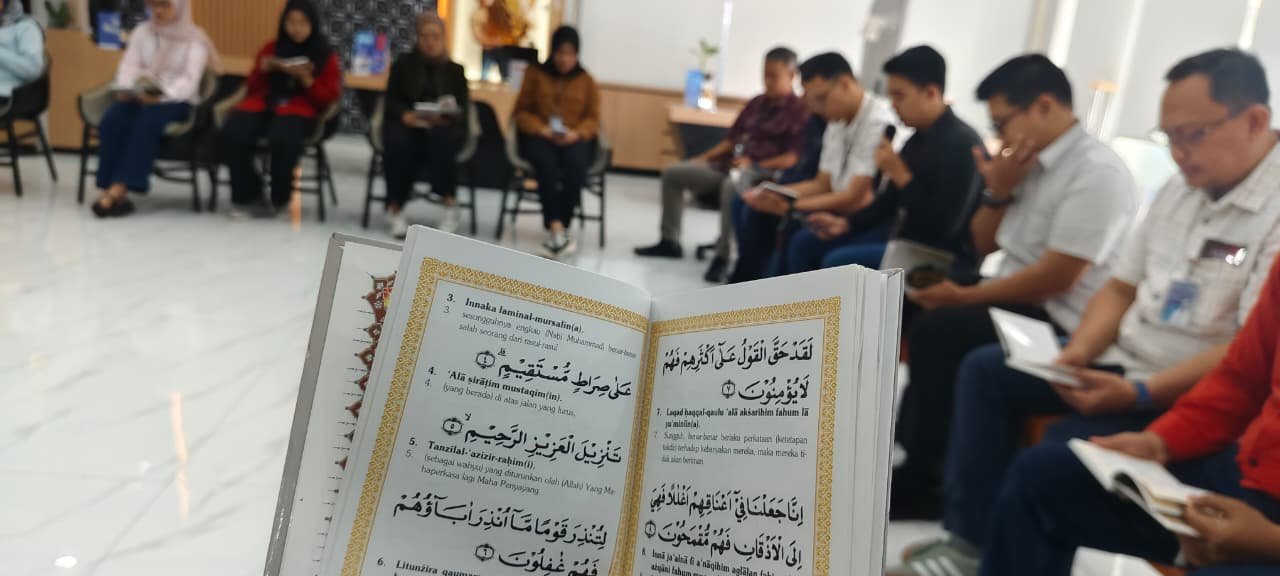 3. Innaka laminal-mursalīn(a).
3. sesungguhnya engkau (Nabi Muhammad) benar-benar
salah seorang dari rasul-rasul
عَلٰى صِرَاطٍ مُّسْتَقِيْمٍۗ ٤
4. ‘Alā ṣirāṭim mustaqīm(in).
4. (yang berada) di atas jalan yang lurus,
تَنْزِيْلَ الْعَزِيْزِ الرَّحِيْمِۙ ٥
5. Tanzīlal-‘azīzir-raḥīm(i).
5. (sebagai wahyu) yang diturunkan oleh (Allah) Yang Ma-
haperkasa lagi Maha Penyayang.
لِتُنْذِرَ قَوْمًا مَّآ اُنْذِرَ اٰبَاۤؤُهُمْ
فَهُمْ غٰفِلُوْنَ ٦
6. Litunżira qauman
لَقَدْ حَقَّ الْقَوْلُ عَلٰٓى اَكْثَرِهِمْ فَهُمْ
لَا يُؤْمِنُوْنَ ٧
7. Laqad ḥaqqal-qaulu ‘alā akṡarihim fahum lā
yu'minūn(a).
7. Sungguh, benar-benar berlaku perkataan (ketetapan
takdir) terhadap kebanyakan mereka, maka mereka ti-
dak akan beriman.
اِنَّا جَعَلْنَا فِيْٓ اَعْنَاقِهِمْ اَغْلٰلًا فَهِيَ
اِلَى الْاَذْقَانِ فَهُمْ مُّقْمَحُوْنَ ٨
8. Innā ja‘alnā fī a‘nāqihim aglālan fahiya
ażqāni fahum